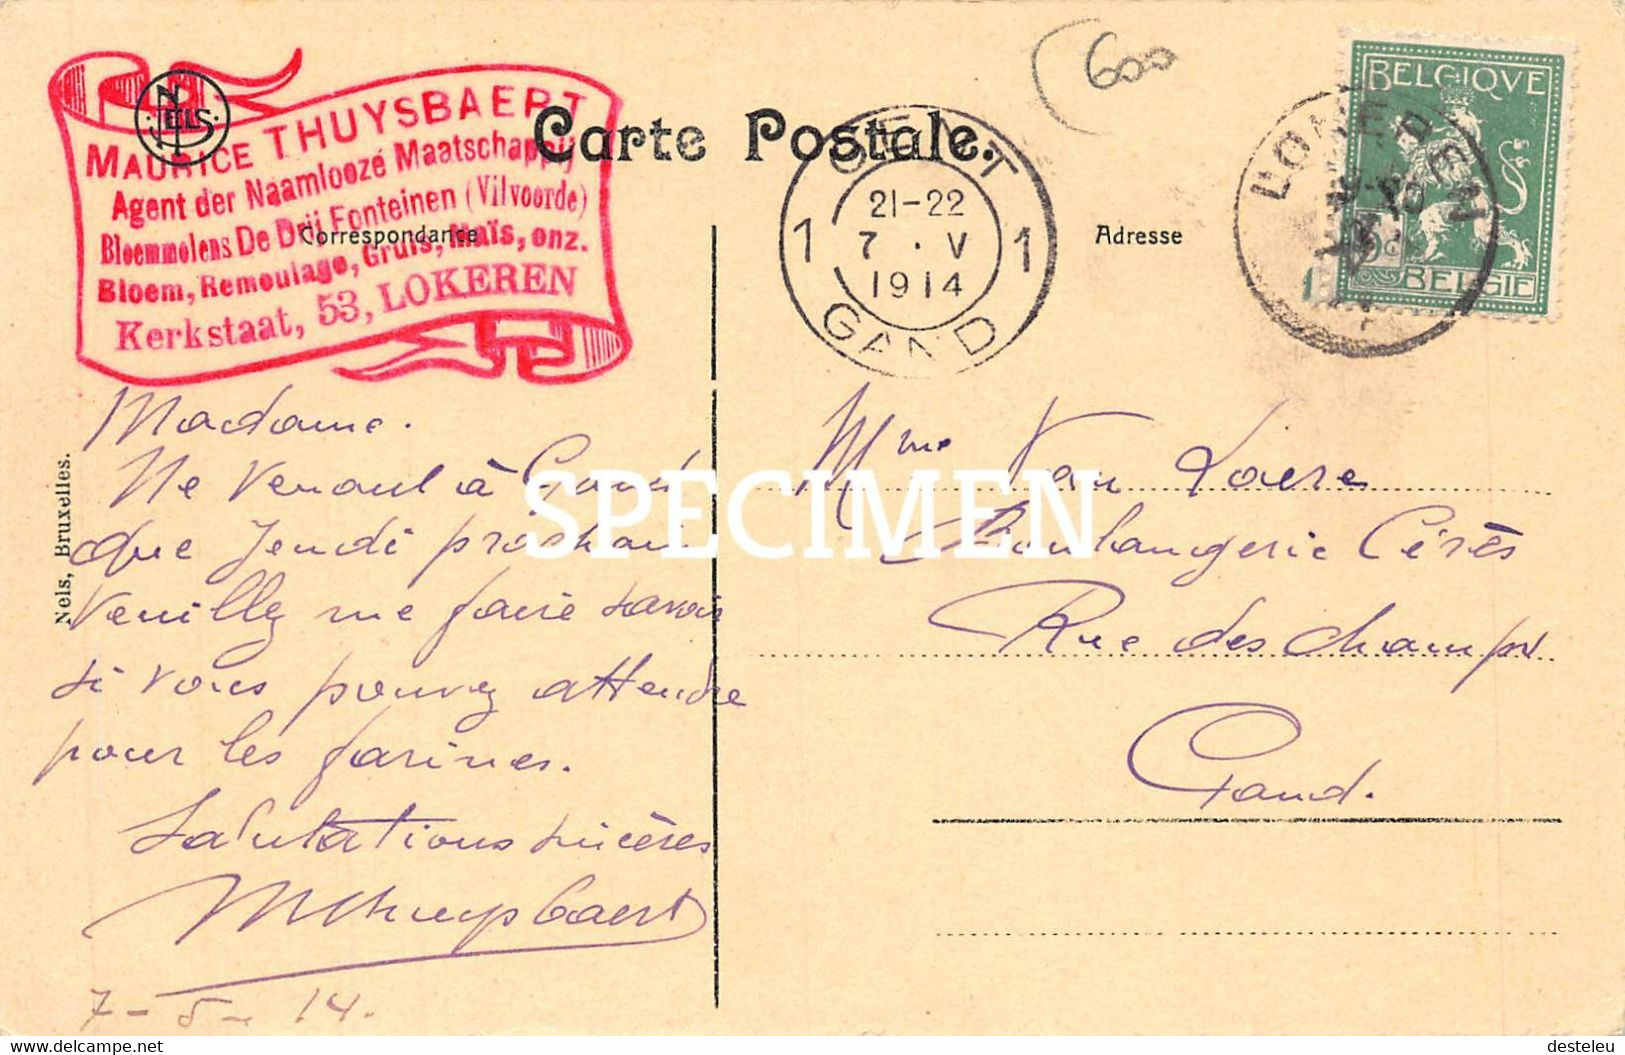 MAURICE THUYSBAERT
Agent der Naamlooze Maatschappij
Bloemmolens De Drij Fonteinen (Vilvoorde)
Bloem, Remoulage, Gruis, Maïs, onz.
Kerkstaat, 53, LOKEREN
NELS
Carte Postale.
Correspondance
Adresse
600
GENT
21-22
1 7 . V 1
1914
GAND
BELGIQVE
5c
BELGIE
Nels, Bruxelles.
Madame.
Ne venant à Gand
que Jeudi prochain
veuillez me faire savoir
si vous pouvez attendre
pour les farines.
Salutations sincères
MThuysbaert
7-5-14.
Mme Van Loere
Boulangerie Cérès
Rue des champs
Gand.
SPECIMEN
desteleu
delcampe.net